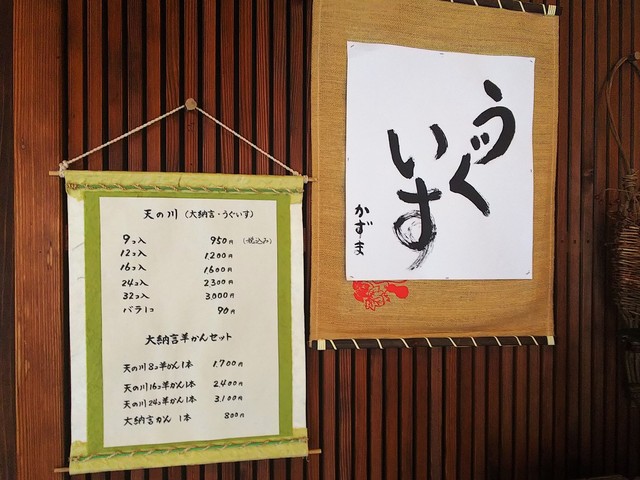 天の川（大納言・うぐいす）
9コ入 950円（税込み）
12コ入 1,200円
16コ入 1,600円
24コ入 2,300円
32コ入 3,000円
バラ1コ 90円
大納言羊かんセット
天の川8コ羊かん1本 1,700円
天の川16コ羊かん1本 2,400円
天の川24コ羊かん1本 3,100円
大納言羊かん 1本 800円
うぐ
いす
かずま